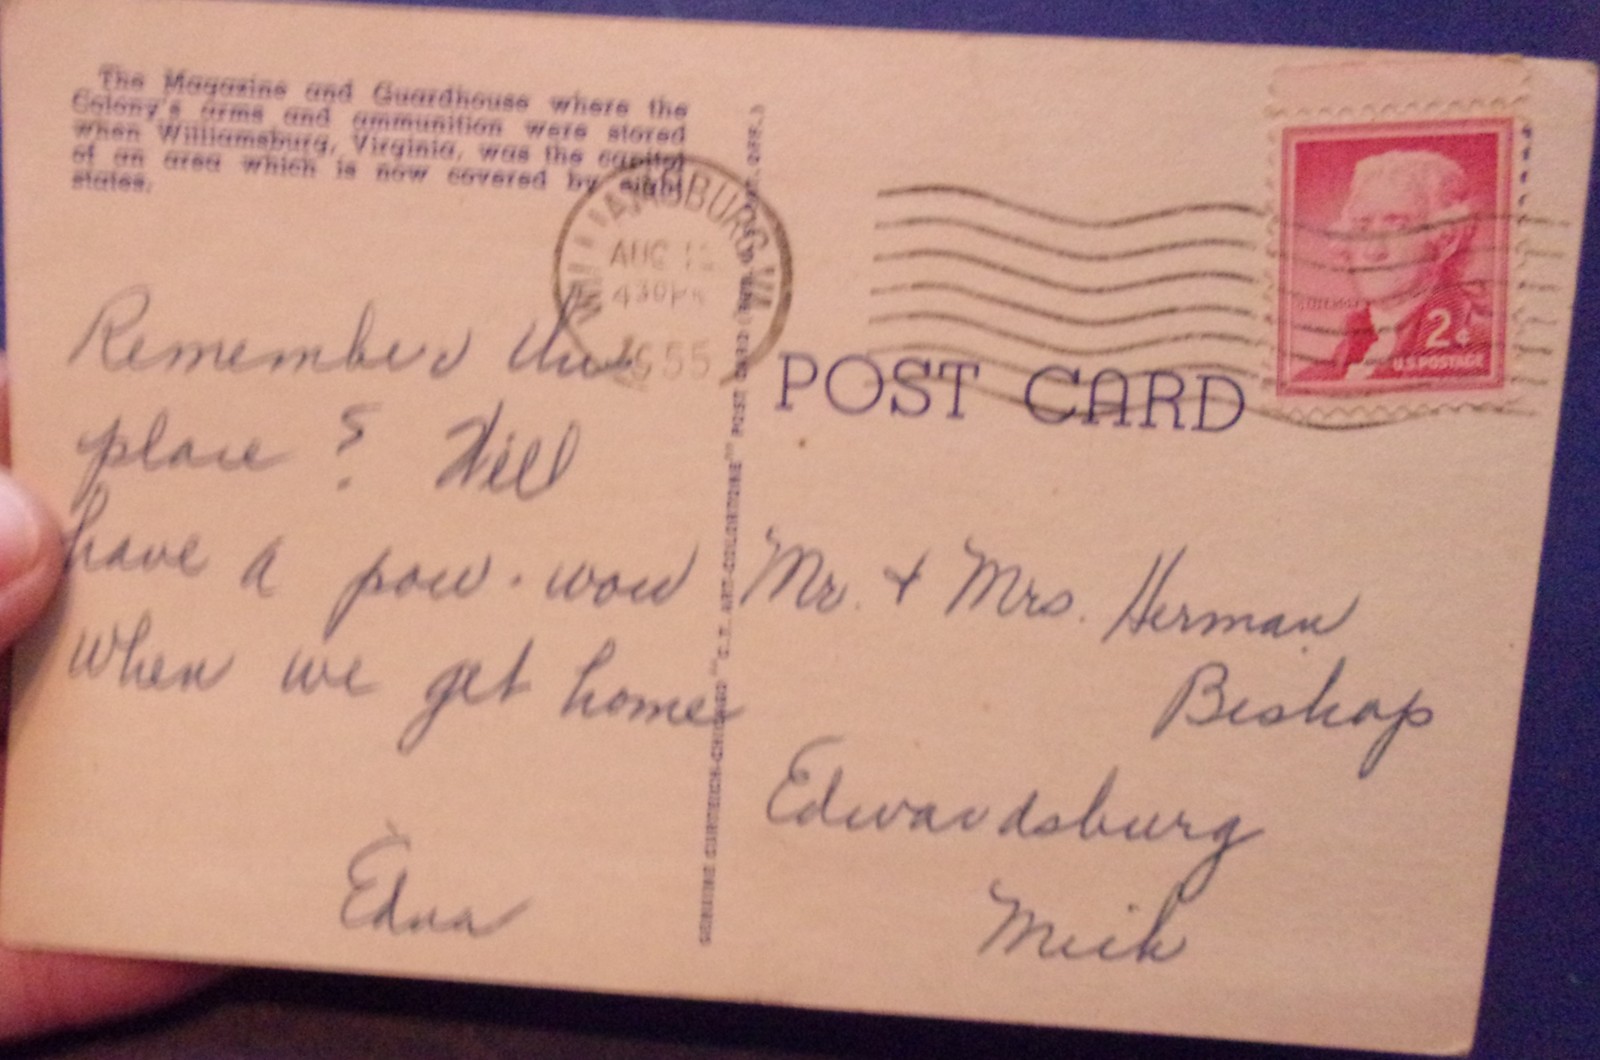 The Magazine and Guardhouse where the
Colony's arms and ammunition were stored
when Williamsburg, Virginia, was the capital
of an area which is now covered by eight
states.
WILLIAMSBURG
AUG
430PM
1955
Remember this
place? Will
have a pow-wow
when we get home
Edna
GENUINE CURTEICH-CHICAGO "C.T. ART-COLORTONE" POST CARD
POST CARD
2¢
U.S. POSTAGE
Mr. + Mrs. Herman
Bishop
Edwardsburg
Mich